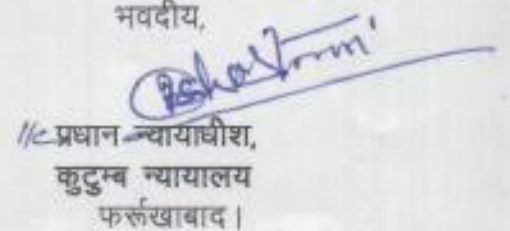 भवदीय,
I/c प्रधान न्यायाधीश,
कुटुम्ब न्यायालय
फर्रूखाबाद।